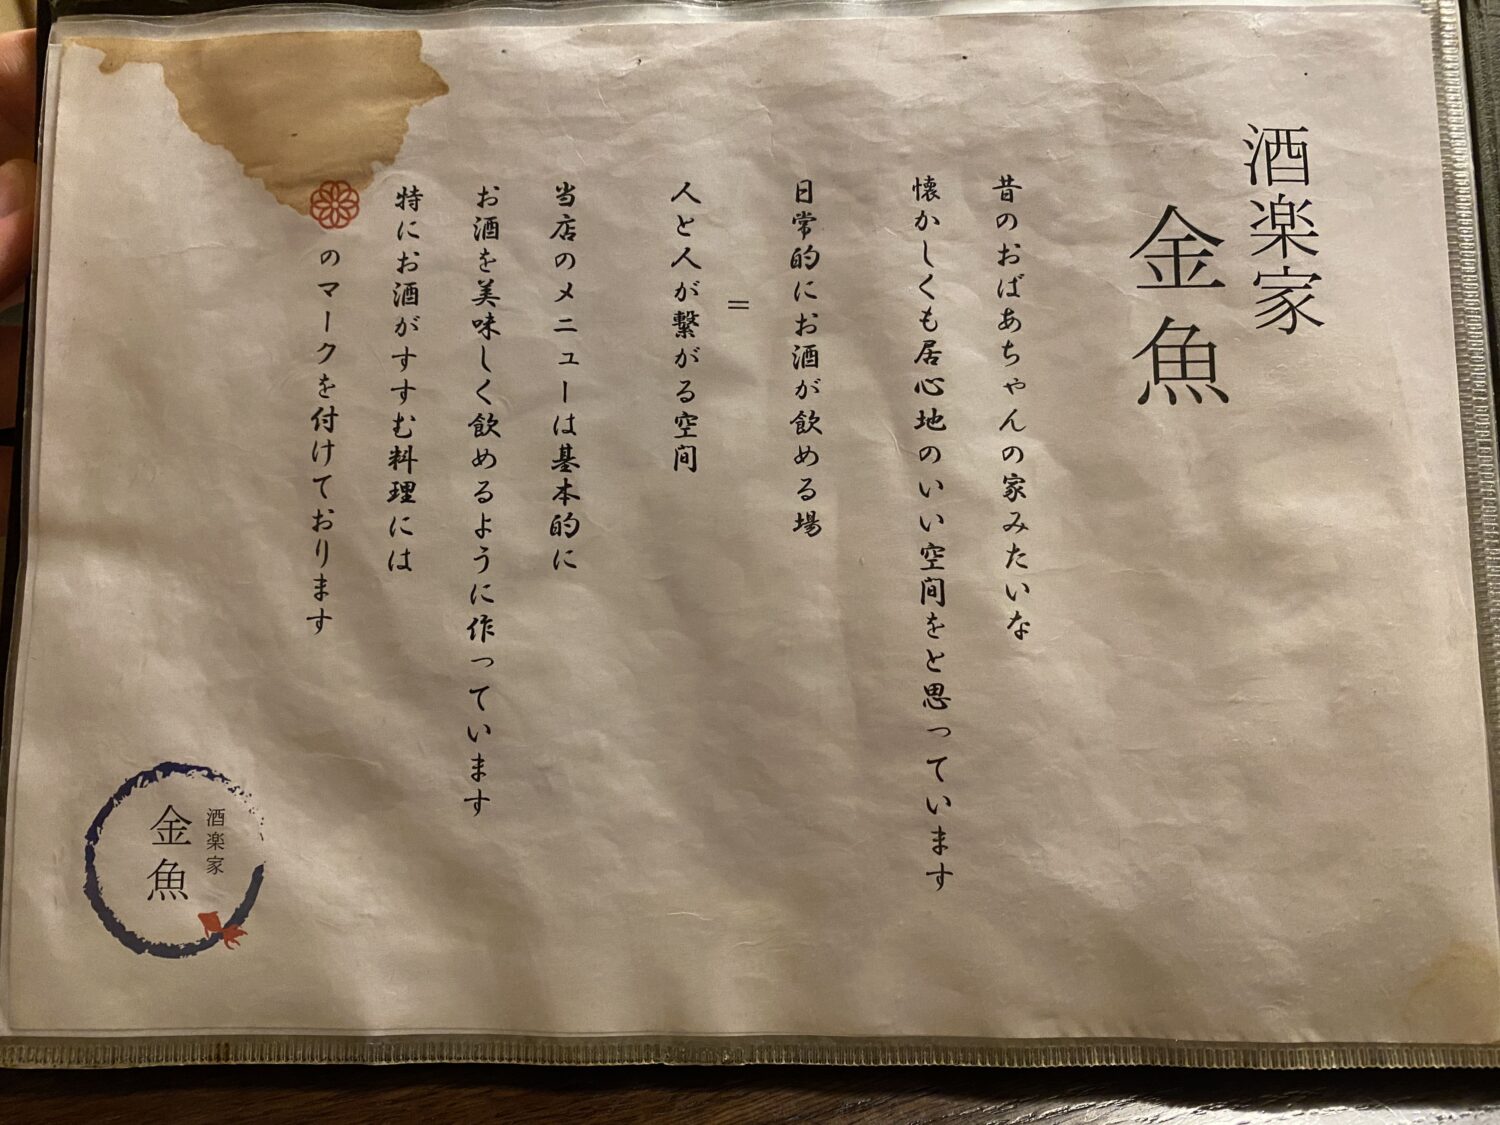 酒楽家
金魚
昔のおばあちゃんの家みたいな
懐かしくも居心地のいい空間をと思っています
日常的にお酒が飲める場
＝
人と人が繋がる空間
当店のメニューは基本的に
お酒を美味しく飲めるように作っています
特にお酒がすすむ料理には
のマークを付けております
酒楽家
金魚